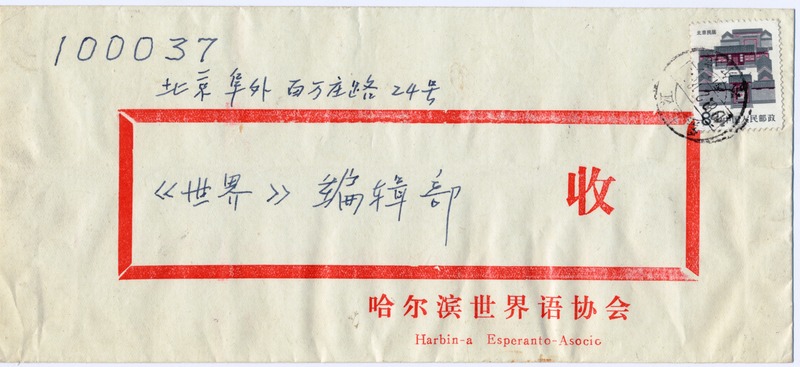 100037
北京阜外百万庄路24号
《世界》编辑部 收
哈尔滨世界语协会
Harbin-a Esperanto-Asocio
北京民居
中国人民邮政